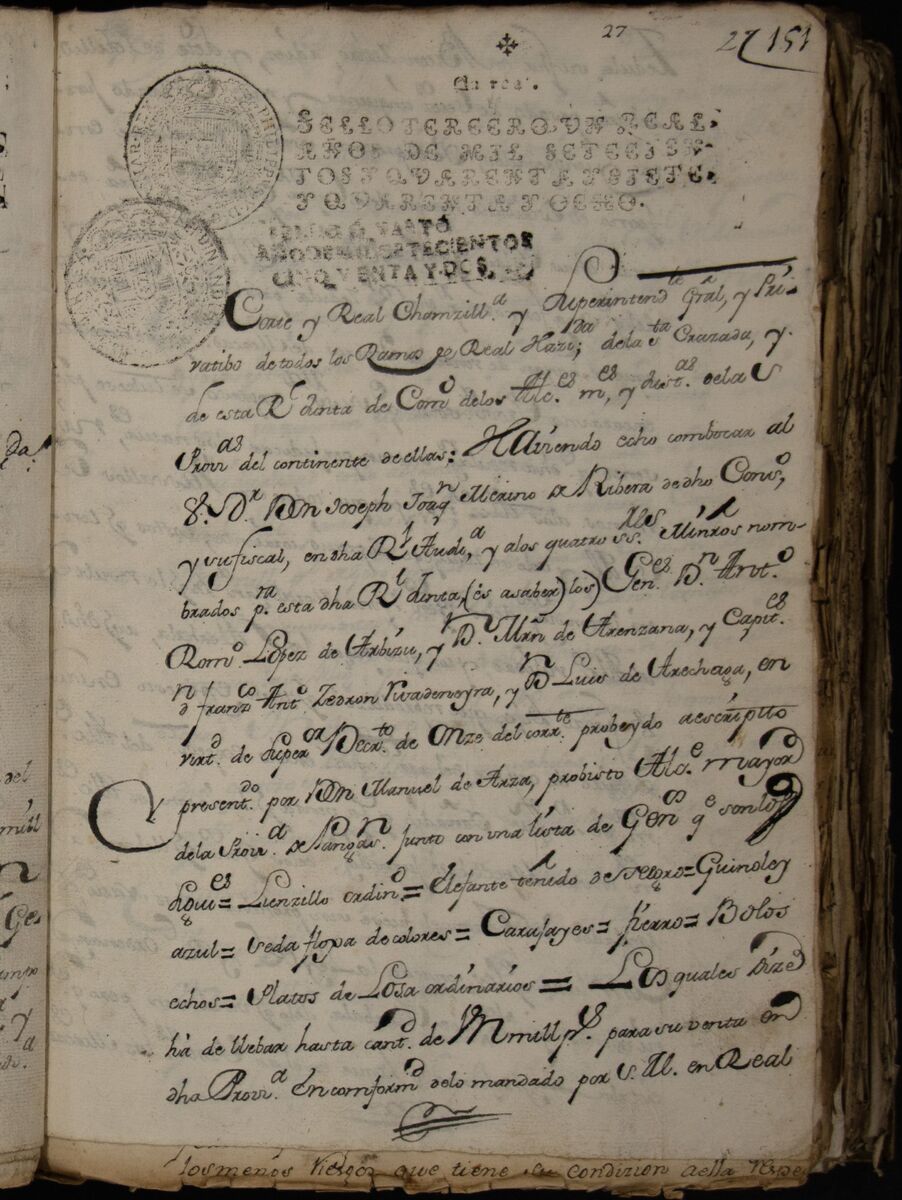 27
27 151
Un real.
SELLO TERCERO, VN REAL,
AÑOS DE MIL SETECIEN-
TOS Y QVARENTA Y SIETE,
Y QVARENTA Y OCHO.
AÑO DE MIL SETECIENTOS
CINQVENTA Y DOS
Corte y Real Chanzill.a y Superintend.te Gral, y Pri-
vatibo de todos los Ramos de Real Haz.da; de la S.ta Cruzada, y
de esta R.l Junta de Com.o de los Alc.es m.es, y Just.as de las
Provi.as del continente de ellas: Haviendo echo combocar al
S.r D.r Dn Joseph Joaq.n Merino de Ribera de dho Cons.o,
y su fiscal, en dha R.l Audi.a, y a los quatro SS.res Minros nom-
brados p.ra esta dha R.l Junta, (es a saber) los) Gen.es D.n Ant.o
Rom.o Lopez de Arbizu, y D.n Mrn de Arenzana, y Capit.es
D.n franz.co Ant.o Zedron Vivadeneyra, y D.n Luis de Arechaga, en
virt.d de Super.or Decr.to de Onze del corr.te probeydo a escripto
present.do por Dn Manuel de Arza, probisto Alc.e mayor
de la Provi.a de Pangas.n junto con una lista de Gen.os q.e son los
sigui.es = Lienzillo ordin.o = Elefante teñido de negro = Guindo y
azul = Seda flopa de colores = Carafayes = fierro = Bolos
echos = Platos de Losa ordinarios = Los quales dize
ha de llebar hasta cant.d de mill p.s para su venta en
dha Provi.a En comform.d de lo mandado por S. M. en Real
los menos riesgos que tiene su condizion aella